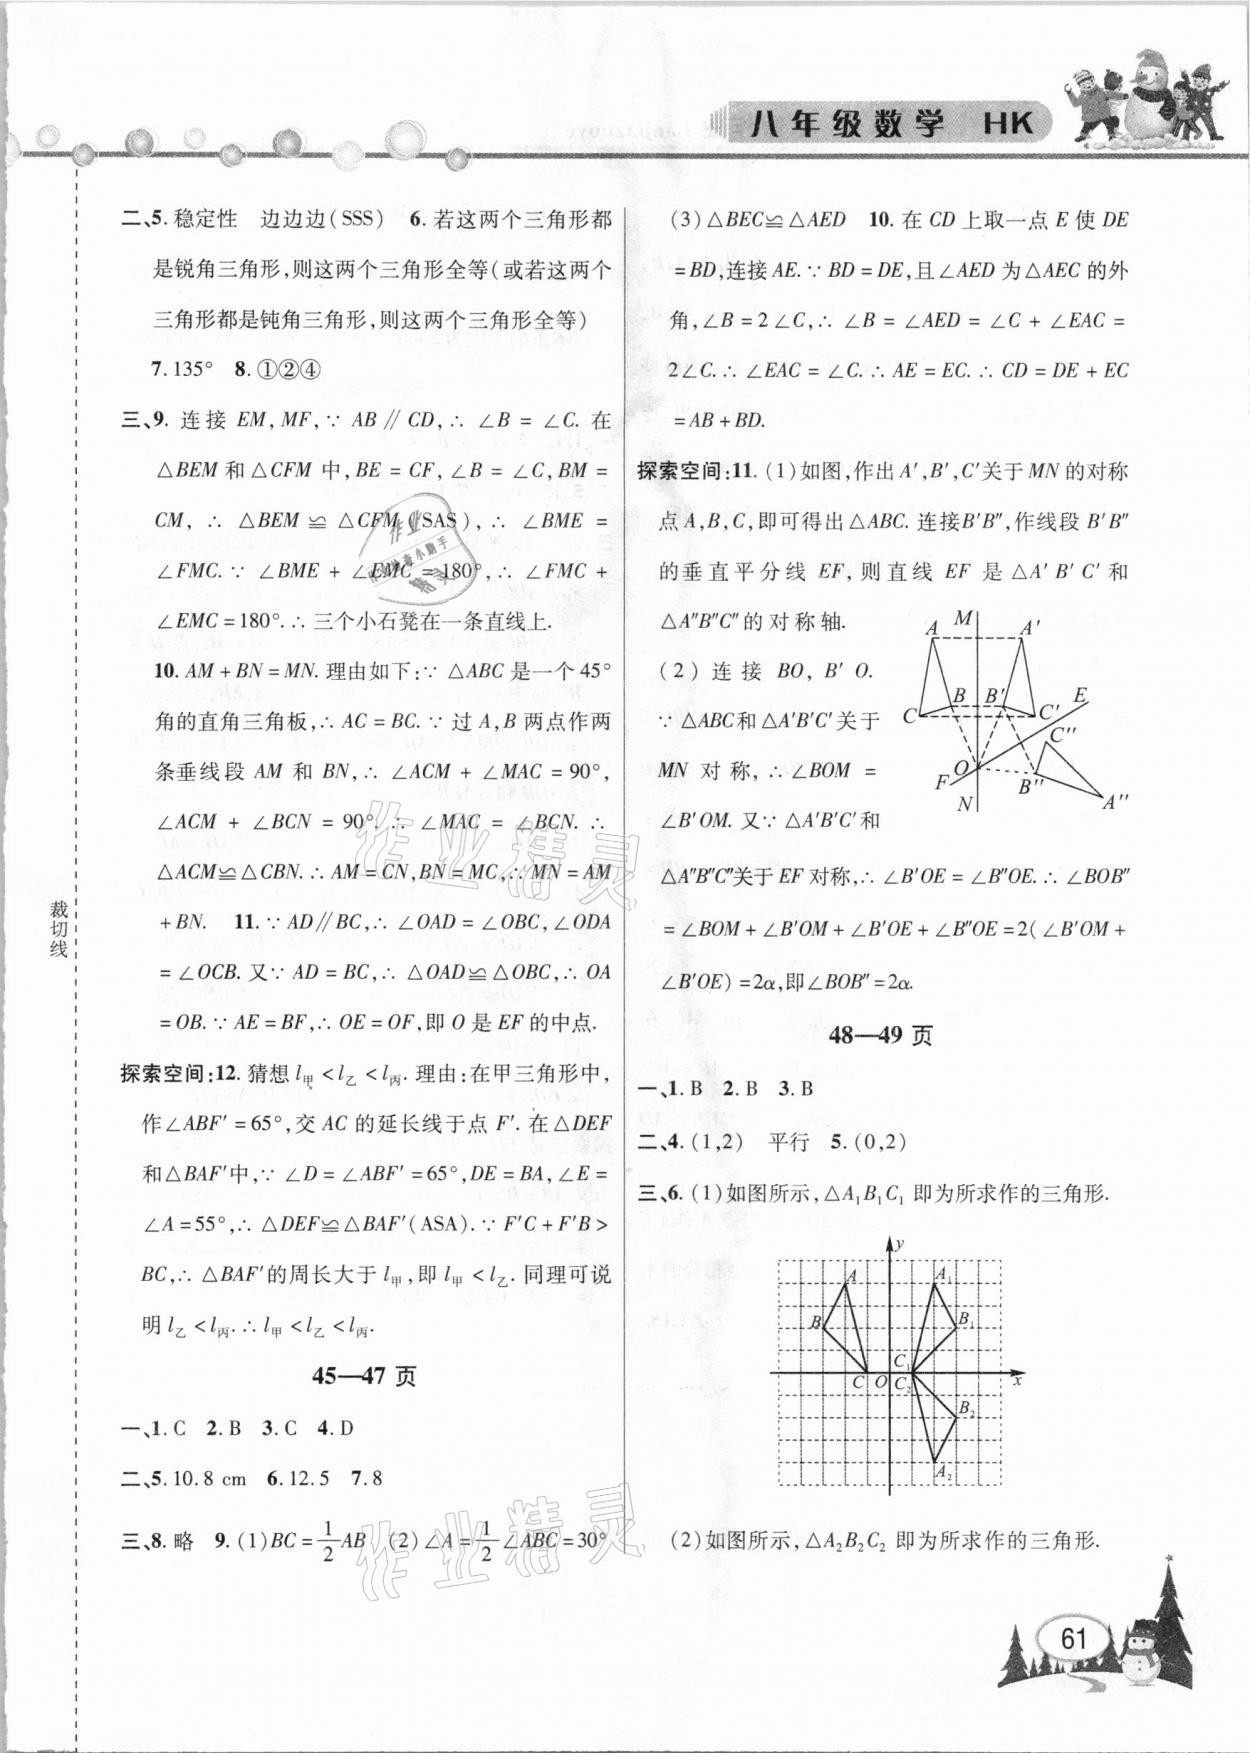 八年级数学 HK
二、5. 稳定性 边边边(SSS) 6. 若这两个三角形都
是锐角三角形,则这两个三角形全等(或若这两个
三角形都是钝角三角形,则这两个三角形全等)
7. 135° 8. ①②④
三、9. 连接 EM,MF,∵ AB∥CD,∴ ∠B = ∠C. 在
△BEM 和△CFM 中,BE = CF,∠B = ∠C,BM =
CM, ∴ △BEM ≌ △CFM (SAS),∴ ∠BME =
∠FMC. ∵ ∠BME + ∠EMC = 180°,∴ ∠FMC +
∠EMC = 180°. ∴ 三个小石凳在一条直线上.
10. AM + BN = MN. 理由如下:∵ △ABC 是一个45°
角的直角三角板,∴ AC = BC. ∵ 过 A,B 两点作两
条垂线段 AM 和 BN,∴ ∠ACM + ∠MAC = 90°,
∠ACM + ∠BCN = 90°. ∴ ∠MAC = ∠BCN. ∴
△ACM≌△CBN. ∴ AM = CN,BN = MC,∴ MN = AM
+ BN. 11. ∵ AD∥BC,∴ ∠OAD = ∠OBC,∠ODA
= ∠OCB. 又∵ AD = BC,∴ △OAD≌△OBC,∴ OA
= OB. ∵ AE = BF,∴ OE = OF,即 O 是 EF 的中点.
探索空间:12. 猜想 l甲 < l乙 < l丙. 理由:在甲三角形中,
作∠ABF′ = 65°,交 AC 的延长线于点 F′. 在△DEF
和△BAF′中,∵ ∠D = ∠ABF′ = 65°,DE = BA,∠E =
∠A = 55°,∴ △DEF≌△BAF′(ASA). ∵ F′C + F′B >
BC,∴ △BAF′的周长大于 l甲,即 l甲 < l乙. 同理可说
明 l乙 < l丙. ∴ l甲 < l乙 < l丙.
45—47 页
一、1. C 2. B 3. C 4. D
二、5. 10.8 cm 6. 12.5 7. 8
三、8. 略 9. (1)BC = 1/2 AB (2)∠A = 1/2 ∠ABC = 30°
(3)△BEC≌△AED 10. 在 CD 上取一点 E 使 DE
= BD,连接 AE. ∵ BD = DE,且∠AED 为△AEC 的外
角,∠B = 2∠C,∴ ∠B = ∠AED = ∠C + ∠EAC =
2∠C. ∴ ∠EAC = ∠C. ∴ AE = EC. ∴ CD = DE + EC
= AB + BD.
探索空间:11. (1)如图,作出 A′,B′,C′关于 MN 的对称
点 A,B,C,即可得出△ABC. 连接B′B″,作线段 B′B″
的垂直平分线 EF,则直线 EF 是△A′B′C′和
△A″B″C″的对称轴.
(2)连接 BO, B′O.
∵△ABC和△A′B′C′关于
MN 对称,∴∠BOM =
∠B′OM. 又∵△A′B′C′和
△A″B″C″关于 EF 对称,∴ ∠B′OE = ∠B″OE. ∴ ∠BOB″
= ∠BOM + ∠B′OM + ∠B′OE + ∠B″OE = 2(∠B′OM +
∠B′OE) = 2α,即∠BOB″ = 2α.
M A A′ B B′ E C C′ C″ O F B″ N A″
48—49 页
一、1. B 2. B 3. B
二、4. (1,2) 平行 5. (0,2)
三、6. (1)如图所示,△A₁B₁C₁ 即为所求作的三角形.
y A A₁ B B₁ C O C₁ C₂ x B₂ A₂
(2)如图所示,△A₂B₂C₂ 即为所求作的三角形.
裁切线
61
作业精灵
作业精灵